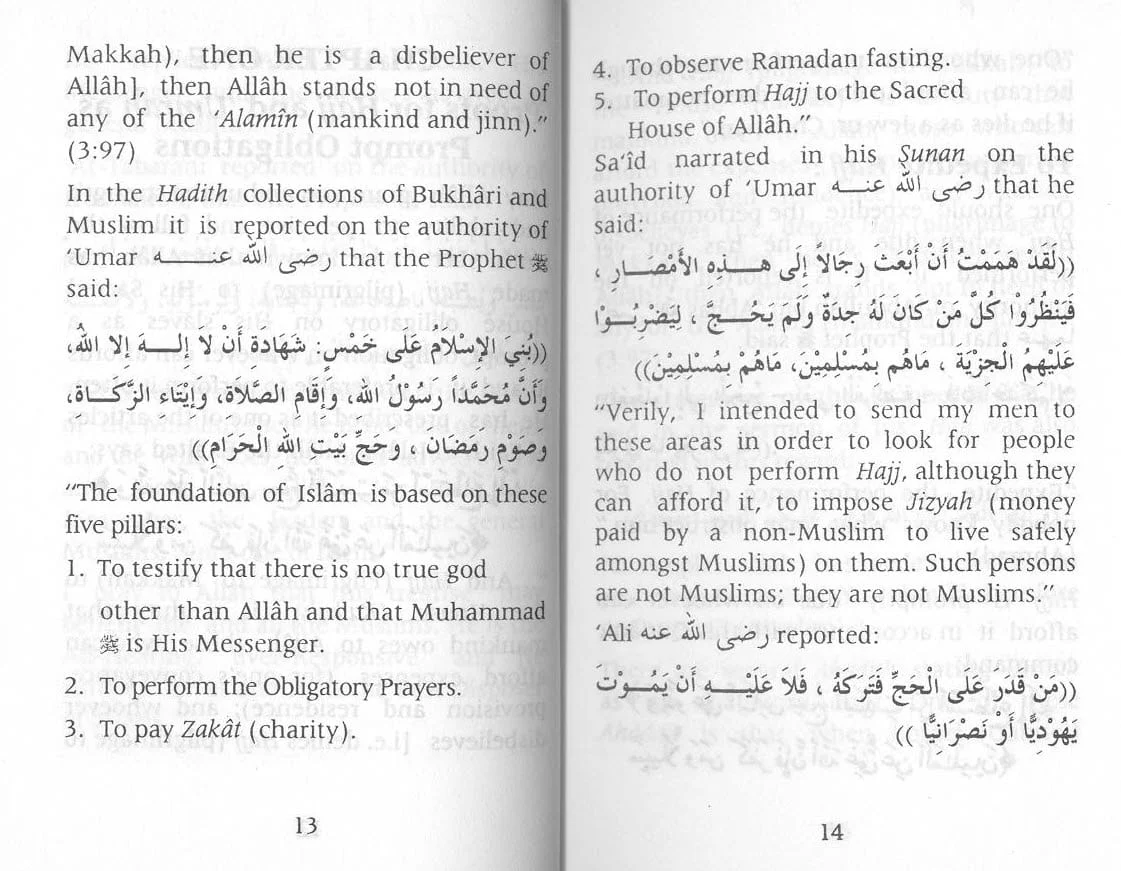 Makkah), then he is a disbeliever of
Allâh], then Allâh stands not in need of
any of the ‘Alamîn (mankind and jinn).”
(3:97)
In the Hadith collections of Bukhâri and
Muslim it is reported on the authority of
‘Umar رضى الله عنه that the Prophet ﷺ
said:
((بُنِيَ الإِسْلاَمُ عَلَى خَمْسٍ: شَهَادَةِ أَنْ لاَ إِلَهَ إِلاَ اللهُ،
وَأَنَّ مُحَمَّدًا رَسُوْلُ اللهِ، وَإِقَامِ الصَّلاَةِ، وَإِيْتَاءِ الزَّكَاةِ،
وَصَوْمِ رَمَضَانَ ، وَحَجِّ بَيْتِ اللهِ الْحَرَامِ))
“The foundation of Islâm is based on these
five pillars:
1. To testify that there is no true god
other than Allâh and that Muhammad
ﷺ is His Messenger.
2. To perform the Obligatory Prayers.
3. To pay Zakât (charity).
13
4. To observe Ramadan fasting.
5. To perform Hajj to the Sacred
House of Allâh.”
Sa‘îd narrated in his Sunan on the
authority of ‘Umar رضى الله عنه that he
said:
((لَقَدْ هَمَمْتُ أَنْ أَبْعَثَ رِجَالاً إِلَى هَذِهِ الأَمْصَارِ ،
فَيَنْظُرُوْا كُلَّ مَنْ كَانَ لَهُ جِدَةٌ وَلَمْ يَحُجَّ ، لِيَضْرِبُوْا
عَلَيْهِمُ الْجِزْيَةَ ، مَاهُمْ بِمُسْلِمِيْنَ، مَاهُمْ بِمُسْلِمِيْنَ))
“Verily, I intended to send my men to
these areas in order to look for people
who do not perform Hajj, although they
can afford it, to impose Jizyah (money
paid by a non-Muslim to live safely
amongst Muslims) on them. Such persons
are not Muslims; they are not Muslims.”
‘Ali رضى الله عنه reported:
((مَنْ قَدَرَ عَلَى الْحَجِّ فَتَرَكَهُ ، فَلاَ عَلَيْهِ أَنْ يَمُوْتَ
يَهُوْدِيًّا أَوْ نَصْرَانِيًّا ))
14